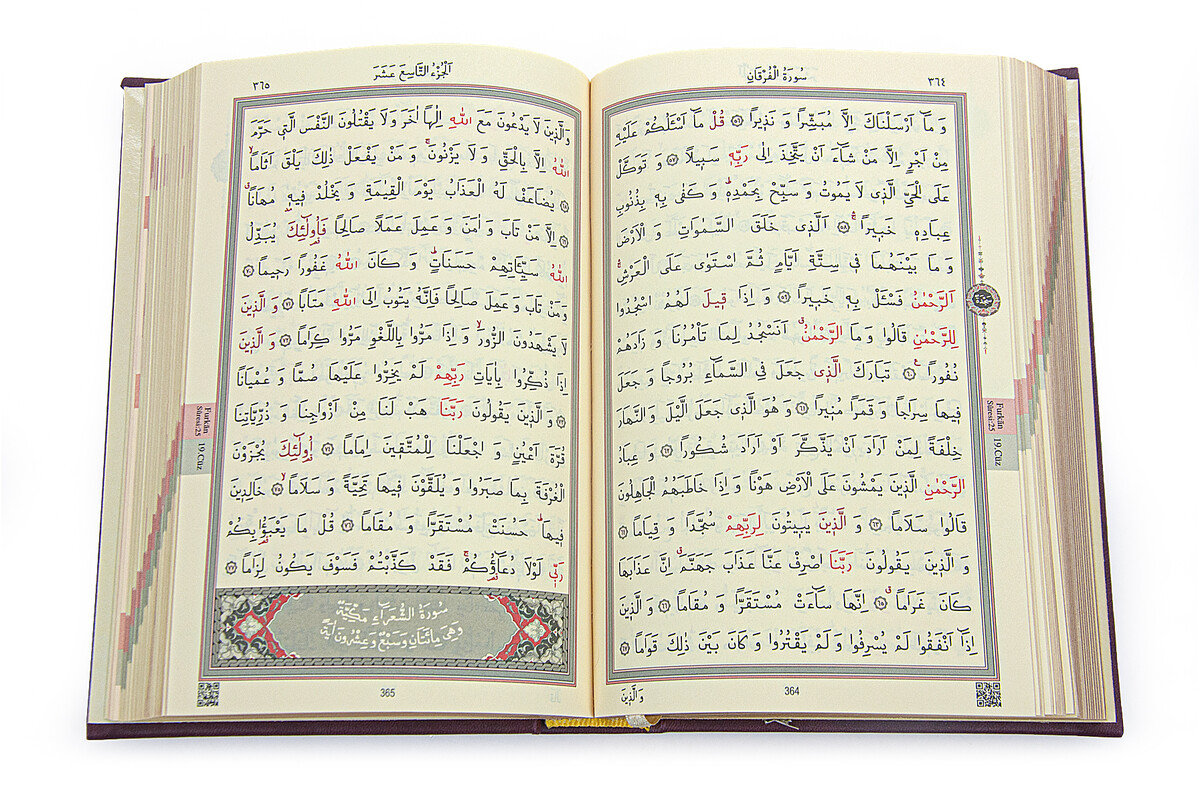 سُورَةُ الْفُرْقَانِ
٣٦٤
وَ مَٓا اَرْسَلْنَاكَ اِلَّا مُبَشِّرًا وَ نَذ۪يرًا ﴿٥٦﴾ قُلْ مَٓا اَسْـَٔلُكُمْ عَلَيْهِ
مِنْ اَجْرٍ اِلَّا مَنْ شَٓاءَ اَنْ يَتَّخِذَ اِلٰى رَبِّه۪ سَب۪يلًا ﴿٥٧﴾ وَ تَوَكَّلْ
عَلَى الْحَيِّ الَّذ۪ي لَا يَمُوتُ وَ سَبِّحْ بِحَمْدِه۪ۜ وَ كَفٰى بِه۪ بِذُنُوبِ
عِبَادِه۪ خَب۪يرًاۚ ﴿٥٨﴾ اَلَّذ۪ي خَلَقَ السَّمٰوَاتِ وَ الْاَرْضَ
وَ مَا بَيْنَهُمَا ف۪ي سِتَّةِ اَيَّامٍ ثُمَّ اسْتَوٰى عَلَى الْعَرْشِۚ
اَلرَّحْمٰنُ فَسْـَٔلْ بِه۪ خَب۪يرًا ﴿٥٩﴾ وَ اِذَا ق۪يلَ لَهُمُ اسْجُدُوا
لِلرَّحْمٰنِ قَالُوا وَ مَا الرَّحْمٰنُۗ اَنَسْجُدُ لِمَا تَأْمُرُنَا وَ زَادَهُمْ
نُفُورًا۟ ﴿٦٠﴾ تَبَارَكَ الَّذ۪ي جَعَلَ فِي السَّمَٓاءِ بُرُوجًا وَ جَعَلَ
ف۪يهَا سِرَاجًا وَ قَمَرًا مُن۪يرًا ﴿٦١﴾ وَ هُوَ الَّذ۪ي جَعَلَ الَّيْلَ وَ النَّهَارَ
خِلْفَةً لِمَنْ اَرَادَ اَنْ يَذَّكَّرَ اَوْ اَرَادَ شُكُورًا ﴿٦٢﴾ وَ عِبَادُ
الرَّحْمٰنِ الَّذ۪ينَ يَمْشُونَ عَلَى الْاَرْضِ هَوْنًا وَ اِذَا خَاطَبَهُمُ الْجَاهِلُونَ
قَالُوا سَلَامًا ﴿٦٣﴾ وَ الَّذ۪ينَ يَب۪يتُونَ لِرَبِّهِمْ سُجَّدًا وَ قِيَامًا ﴿٦٤﴾
وَ الَّذ۪ينَ يَقُولُونَ رَبَّنَا اصْرِفْ عَنَّا عَذَابَ جَهَنَّمَۗ اِنَّ عَذَابَهَا
كَانَ غَرَامًاۗ ﴿٦٥﴾ اِنَّهَا سَٓاءَتْ مُسْتَقَرًّا وَ مُقَامًا ﴿٦٦﴾ وَ الَّذ۪ينَ
اِذَٓا اَنْفَقُوا لَمْ يُسْرِفُوا وَ لَمْ يَقْتُرُوا وَ كَانَ بَيْنَ ذٰلِكَ قَوَامًا ﴿٦٧﴾
وَ الَّذ۪ينَ
364
Furkân
Sûresi:25
19.Cüz
اَلْجُزْءُ التَّاسِعَ عَشَرَ
٣٦٥
وَالَّذ۪ينَ لَا يَدْعُونَ مَعَ اللّٰهِ اِلٰهًا اٰخَرَ وَ لَا يَقْتُلُونَ النَّفْسَ الَّت۪ي حَرَّمَ
اللّٰهُ اِلَّا بِالْحَقِّ وَ لَا يَزْنُونَۚ وَ مَنْ يَفْعَلْ ذٰلِكَ يَلْقَ اَثَامًاۙ
﴿٦٨﴾ يُضَاعَفْ لَهُ الْعَذَابُ يَوْمَ الْقِيٰمَةِ وَ يَخْلُدْ ف۪يه۪ مُهَانًاۗ
﴿٦٩﴾ اِلَّا مَنْ تَابَ وَ اٰمَنَ وَ عَمِلَ عَمَلًا صَالِحًا فَاُو۬لٰٓئِكَ يُبَدِّلُ
اللّٰهُ سَيِّـَٔاتِهِمْ حَسَنَاتٍۜ وَ كَانَ اللّٰهُ غَفُورًا رَح۪يمًا ﴿٧٠﴾
وَ مَنْ تَابَ وَ عَمِلَ صَالِحًا فَاِنَّهُ يَتُوبُ اِلَى اللّٰهِ مَتَابًا ﴿٧١﴾ وَ الَّذ۪ينَ
لَا يَشْهَدُونَ الزُّورَۙ وَ اِذَا مَرُّوا بِاللَّغْوِ مَرُّوا كِرَامًا ﴿٧٢﴾ وَ الَّذ۪ينَ
اِذَا ذُكِّرُوا بِاٰيَاتِ رَبِّهِمْ لَمْ يَخِرُّوا عَلَيْهَا صُمًّا وَ عُمْيَانًا
﴿٧٣﴾ وَ الَّذ۪ينَ يَقُولُونَ رَبَّنَا هَبْ لَنَا مِنْ اَزْوَاجِنَا وَ ذُرِّيَّاتِنَا
قُرَّةَ اَعْيُنٍ وَ اجْعَلْنَا لِلْمُتَّق۪ينَ اِمَامًا ﴿٧٤﴾ اُو۬لٰٓئِكَ يُجْزَوْنَ
الْغُرْفَةَ بِمَا صَبَرُوا وَ يُلَقَّوْنَ ف۪يهَا تَحِيَّةً وَ سَلَامًاۙ ﴿٧٥﴾ خَالِد۪ينَ
ف۪يهَاۜ حَسُنَتْ مُسْتَقَرًّا وَ مُقَامًا ﴿٧٦﴾ قُلْ مَا يَعْبَؤُ۬ا بِكُمْ
رَبّ۪ي لَوْلَا دُعَٓاؤُ۬كُمْۚ فَقَدْ كَذَّبْتُمْ فَسَوْفَ يَكُونُ لِزَامًا ﴿٧٧﴾
سُورَةُ الشُّعَرَاءِ مَكِّيَّةٌ
وَهِيَ مِائَتَانِ وَسَبْعٌ وَعِشْرُونَ اٰيَةً
365
Furkân
Sûresi:25
19.Cüz